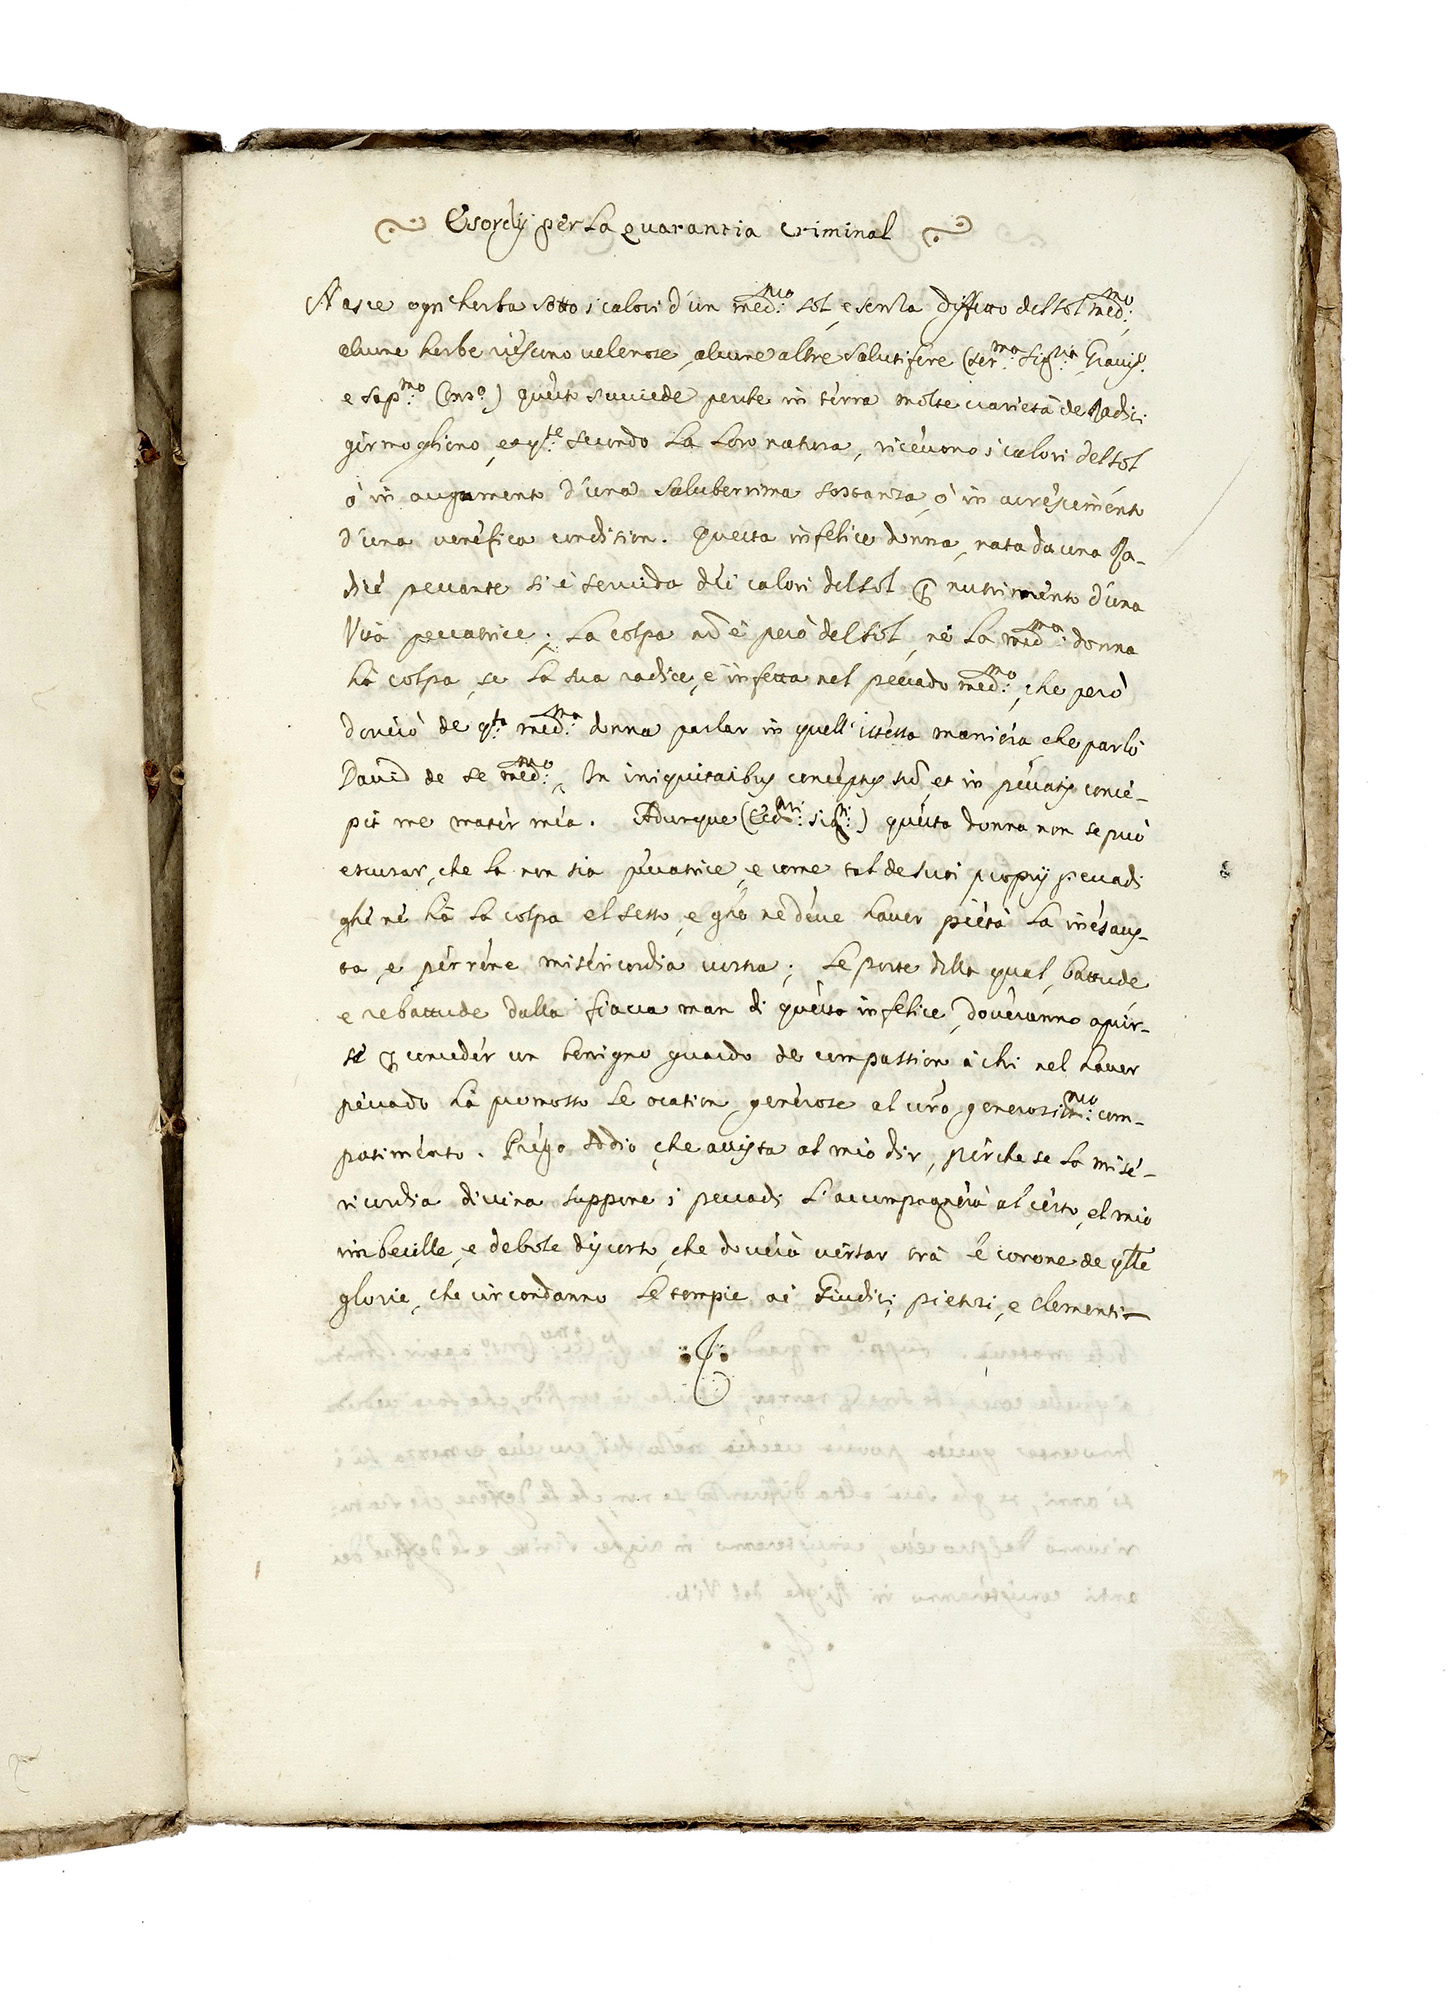 Esordij per la quarantia criminal
Nasce ogn'herba sotto i calori d'un med:mo sol, e senza diffetto del sol med:mo,
alcune herbe riescono velenose, alcune altre salutifere (ser:ma Sig:ria Gravis:
e sap:mo Cons:o) questo succede perche in terra molte varietà de Radici
germogliano, e q:te secondo la loro natura, ricevono i calori del sol
ò in augumento d'una saluberrima sostanza, ò in accrescimento
d'una venefica condition. Questa infelice donna, nata da una Ra-
dice peccante si è servida dei calori del sol p nutrimento d'una
Vita peccatrice; la colpa nō è però del sol, nè la med:ma donna
hà colpa, se la sua radice, è infetta nel peccado med:mo, che però
doverò de q:ta med:ma donna parlar in quell'istessa maniera, che parlò
David de se med:mo, In iniquitatibus conceptus sū, et in peccatis conce-
pit me mater mea. Adunque (Ecc:mi sig:ri) questa donna non se può
escusar, che la non sia peccatrice, e come tal de suoi proprij peccadi
ghe ne hà la colpa el sesso, e ghe ne deve haver pietà la inesaus-
ta, e perrene misericordia vostra; le porte della qual, battude
e rebattude dalla fiacca man di questa infelice, doveranno aprir-
se p conceder un benigno guardo de compassion à chi nel haver
peccado hà promosso le ocation generose al vrō generosiss:mo com-
patimento. Prego Iddio, che assista al mio dir, perche se la mise-
ricordia divina suppone i peccadi l'accompagnerà al certo, el mio
imbecille, e debole discorso, che doverà versar trà le corone de q:lle
glorie, che circondanno le tempie ai Giudici, pietosi, e clementi